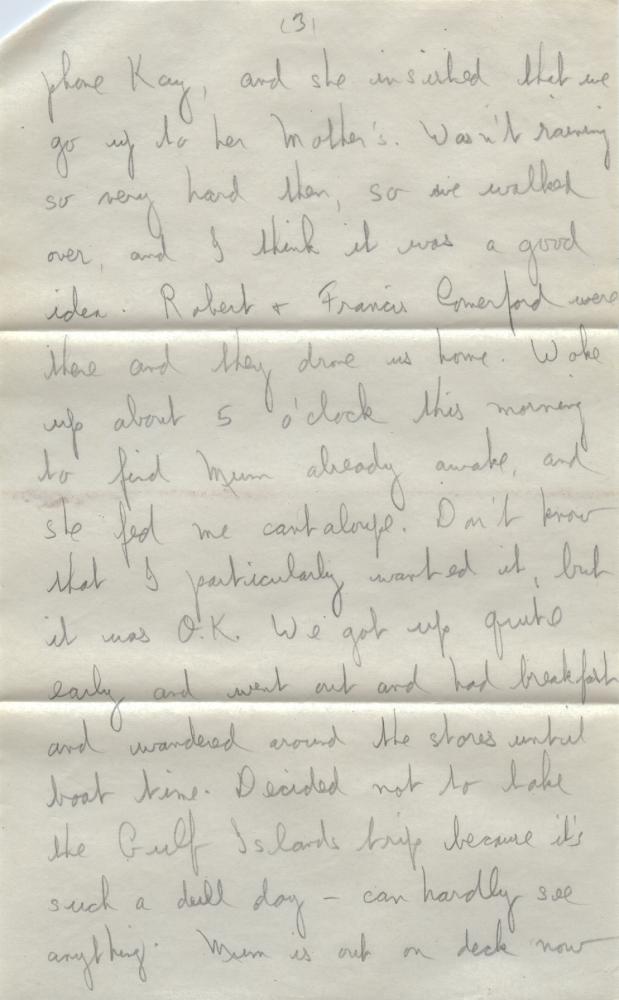 (3)
phone Kay, and she insisted that we
go up to her Mother's. Wasn't raining
so very hard then, so we walked
over, and I think it was a good
idea. Robert + Francis Comerford were
there and they drove us home. Woke
up about 5 o'clock this morning
to find Mum already awake, and
she fed me cantaloupe. Don't know
that I particularly wanted it, but
it was O.K. We got up quite
early and went out and had breakfast
and wandered around the stores until
boat time. Decided not to take
the Gulf Islands trip because it's
such a dull day – can hardly see
anything. Mum is out on deck now